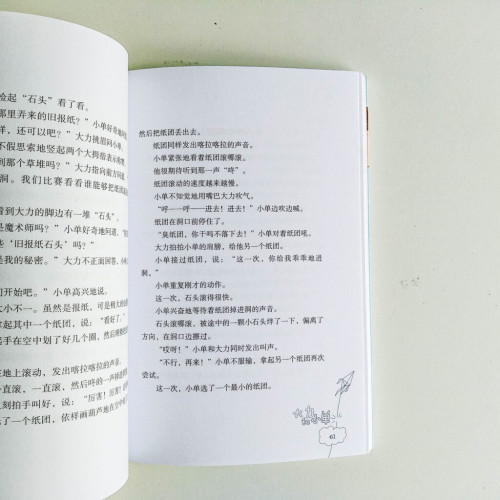 捡起“石头”看了看。
那里弄来的旧报纸？”小单好奇地问
样，还可以吧？”大力挑眉问小单。
不假思索地竖起两个大拇指表示
到那个草堆吗？”大力指向前方
洞。我们比赛看看谁能够把纸团
看到大力的脚边有一堆“石头”。
是魔术师吗？”小单好奇地问道，
些‘旧报纸石头’吗？”
是我的秘密。”大力不正面回答，
开始吧。”小单高兴地说。
大小不一。虽然是报纸，可是
拿起其中一个纸团，说：“看好了，
手在空中划了好几个圈，然后
在地上滚动，发出喀拉喀拉的声音。
一直滚、一直滚，然后咚的一声
刻拍手叫好，说：“厉害！厉害！
了一个纸团，依样画葫芦地在空中
然后把纸团丢出去。
纸团同样发出喀拉喀拉的声音。
小单紧张地看着纸团滚啊滚。
他很期待听到那一声“咚”。
纸团滚动的速度越来越慢。
小单不知觉地用嘴巴大力吹气。
“呼——呼——进去！进去！”小单边吹边喊。
纸团在洞口前停住了。
“臭纸团，你干吗不落下去！”小单对着纸团吼。
大力拍拍小单的肩膀，给他另一个纸团。
小单接过纸团，说：“这一次，你给我乖乖地进
洞。”
小单重复刚才的动作。
这一次，石头滚得很快。
小单兴奋地等待着纸团掉进洞的声音。
石头滚啊滚，被途中的一颗小石头绊了一下，偏离了
方向，在洞口边擦过。
“哎呀！”小单和大力同时发出叫声。
“不行，再来！”小单不服输，拿起另一个纸团再次
尝试。
这一次，小单选了一个最小的纸团。
大力
和小单
61